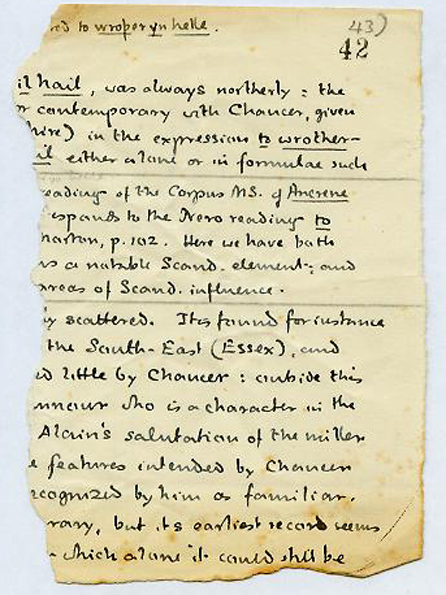 43)
42
red to wroþer yn hele.
il hail, was always northerly: the
r contemporary with Chaucer, given
hire) in the expression to wrother-
il either alone or in formulae such
eading of the Corpus MS. of Ancrene
esponds to the Nero reading to
Morton, p. 102. Here we have both
as a notable Scand. element; and
areas of Scand. influence.
ly scattered. It is found for instance
the South-East (Essex), and
ed little by Chaucer: outside this
who is a character in the
Alain's salutation of the miller
e features intended by Chaucer
recognized by him as familiar.
rary, but its earliest record seems
which alone it could still be